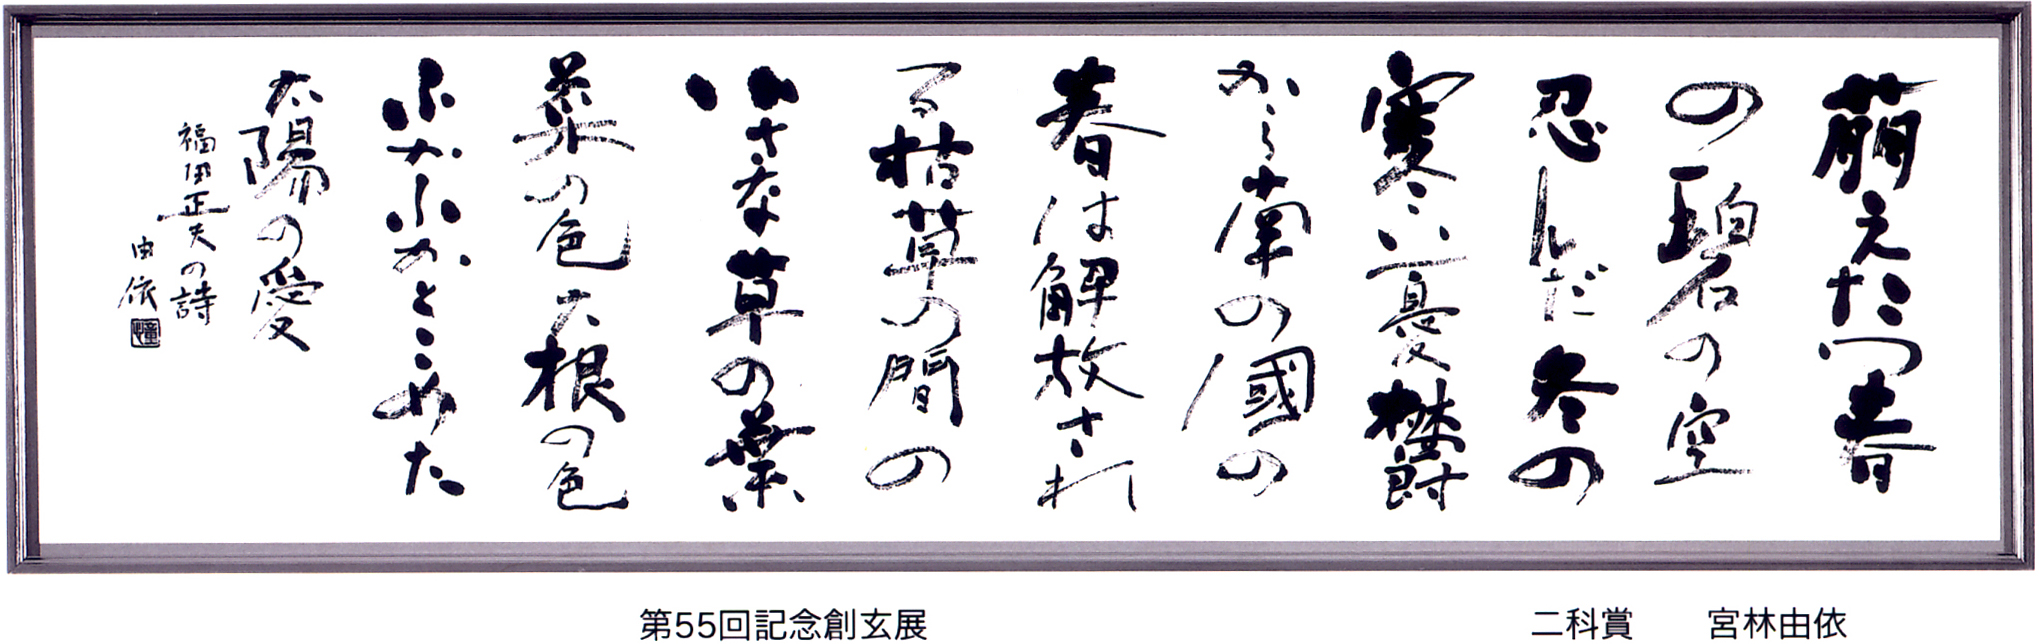 萠えたつ春
の碧の空
忍んだ冬の
寒い憂欝
から南の國の
春は解放され
る枯草の間の
小さな草の葉
菜の色大根の色
ふかふかとこめた
太陽の愛
福田正夫の詩
由依
第55回記念創玄展
二科賞　宮林由依